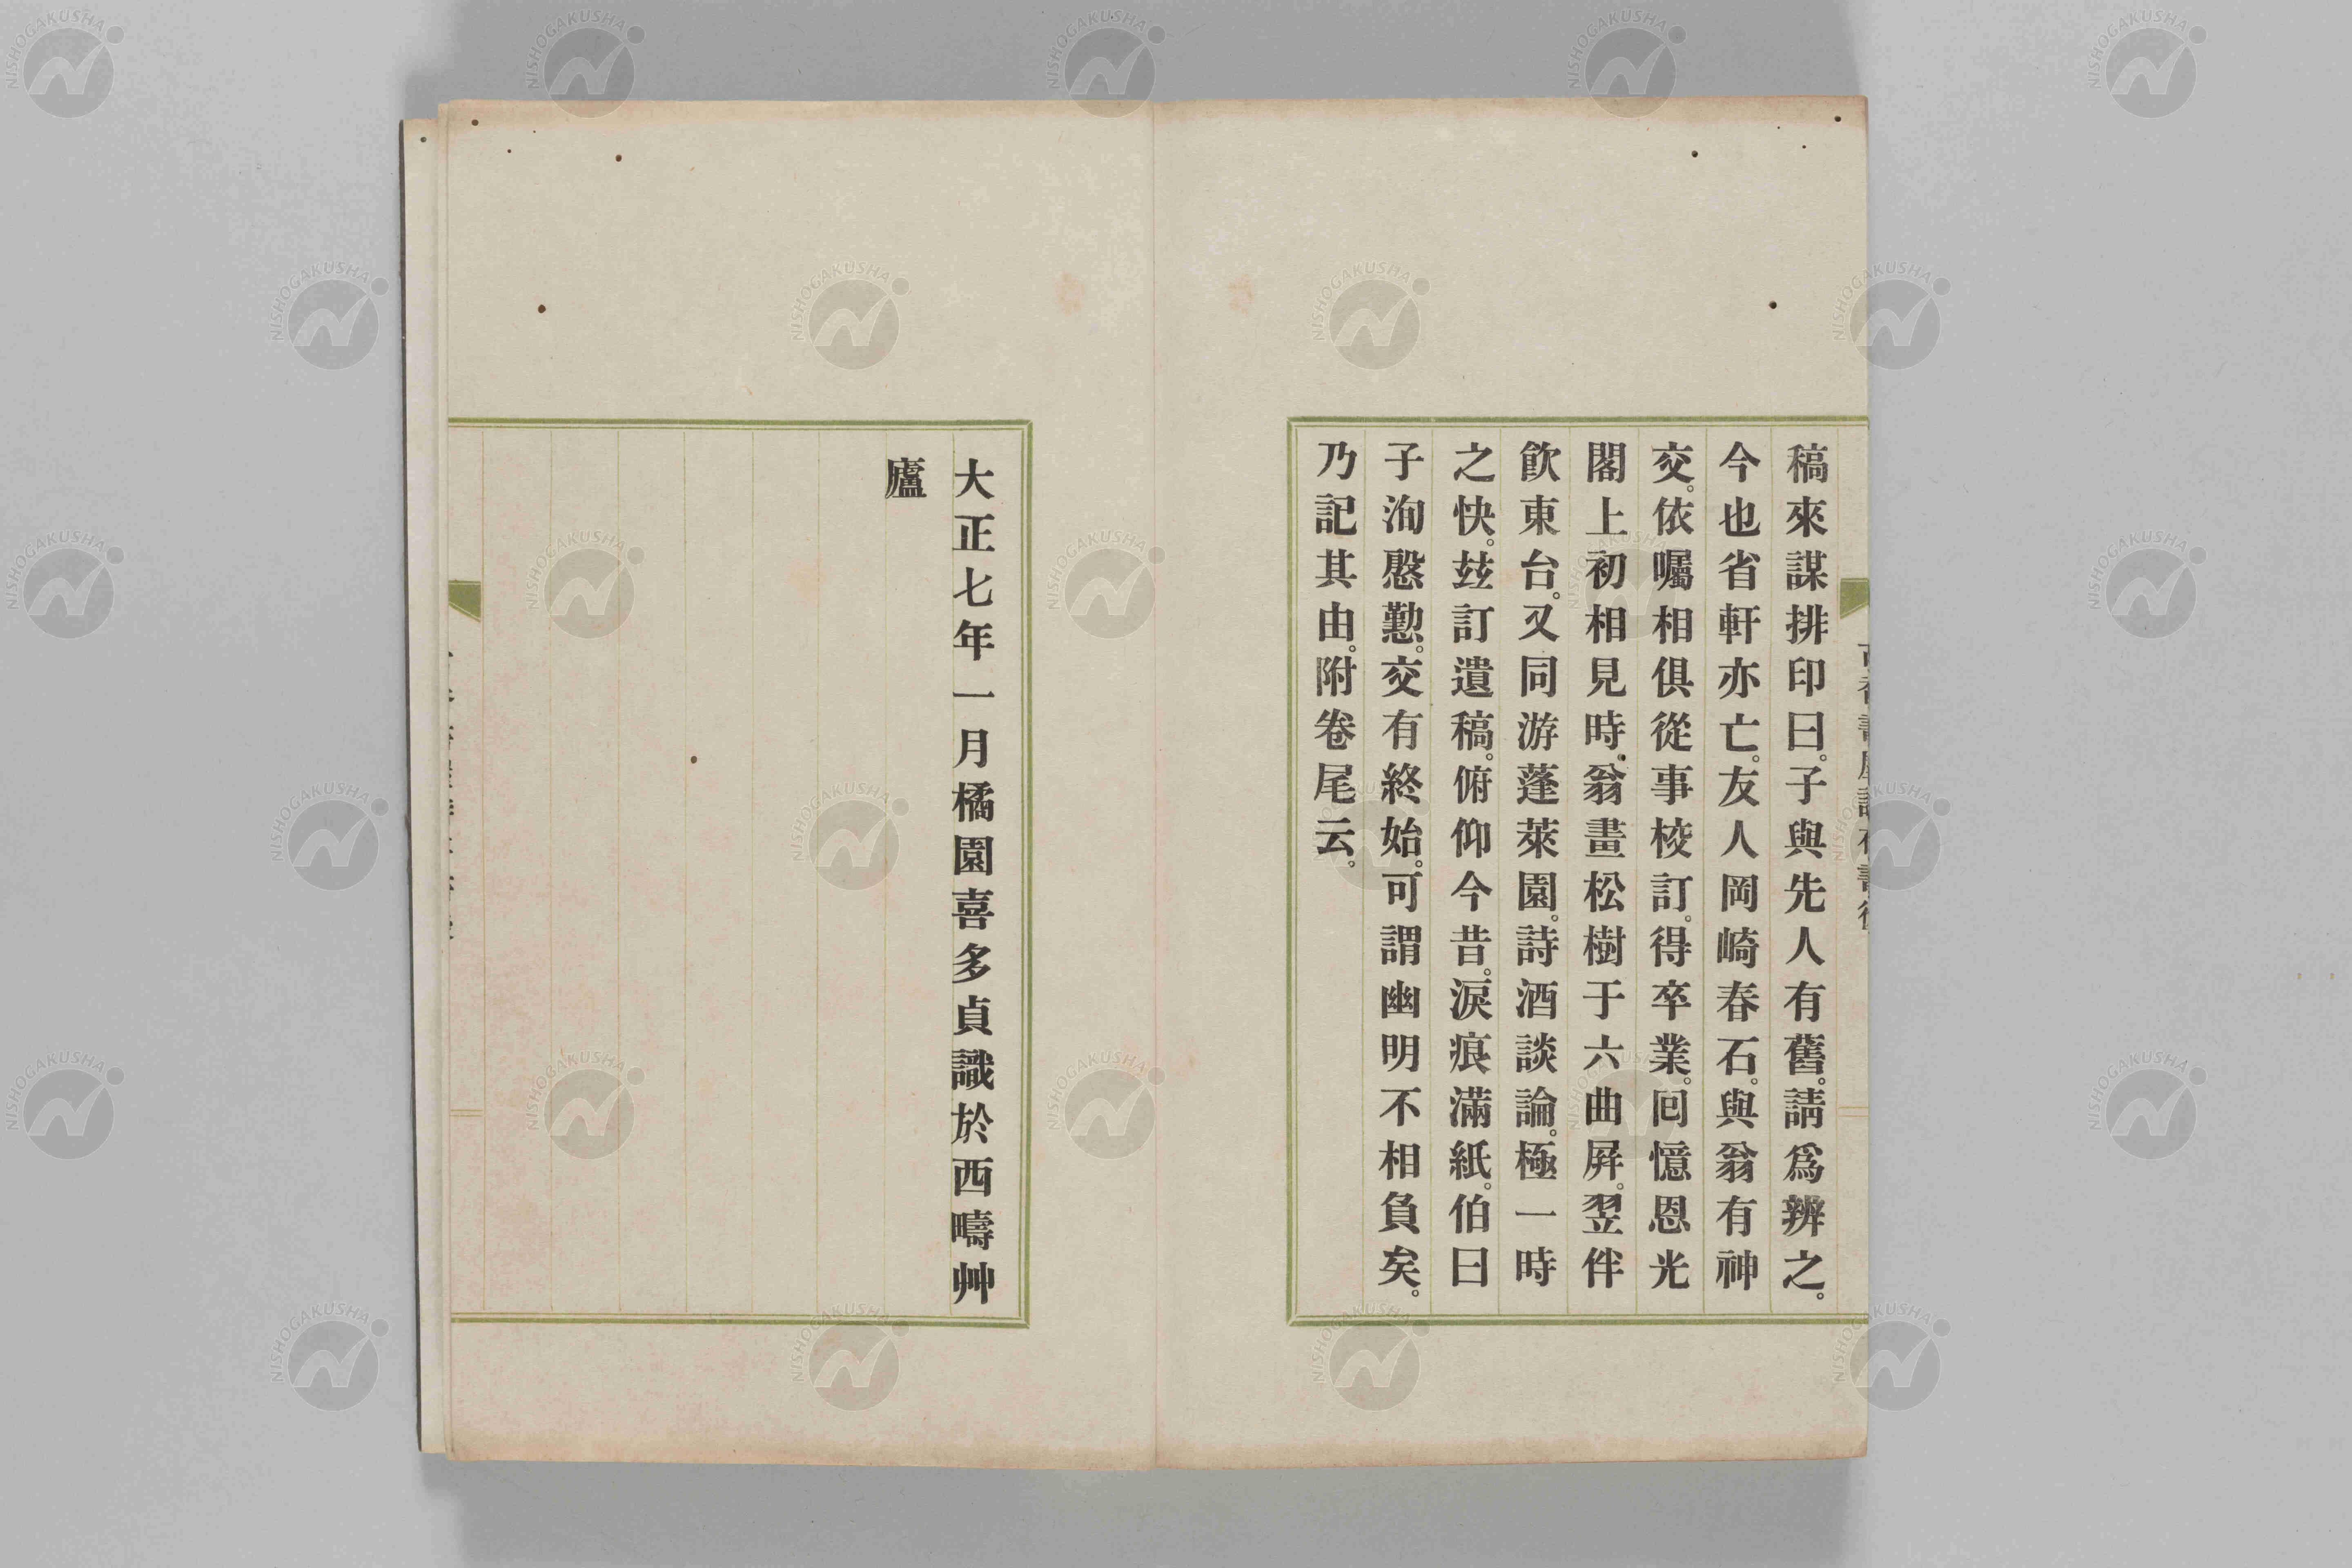 稿來謀排印曰。子與先人有舊。請爲辨之。
今也省軒亦亡。友人岡崎春石。與翁有神
交。依囑相俱從事校訂。得卒業。囘憶恩光
閣上初相見時。翁畫松樹于六曲屛。翌伴
飮東台。又同游蓬萊園。詩酒談論。極一時
之快。玆訂遺稿。俯仰今昔。淚痕滿紙。伯曰
子洵慇懃。交有終始。可謂幽明不相負矣。
乃記其由。附卷尾云。
大正七年一月橘園喜多貞識於西疇艸
廬
NISHOGAKUSHA